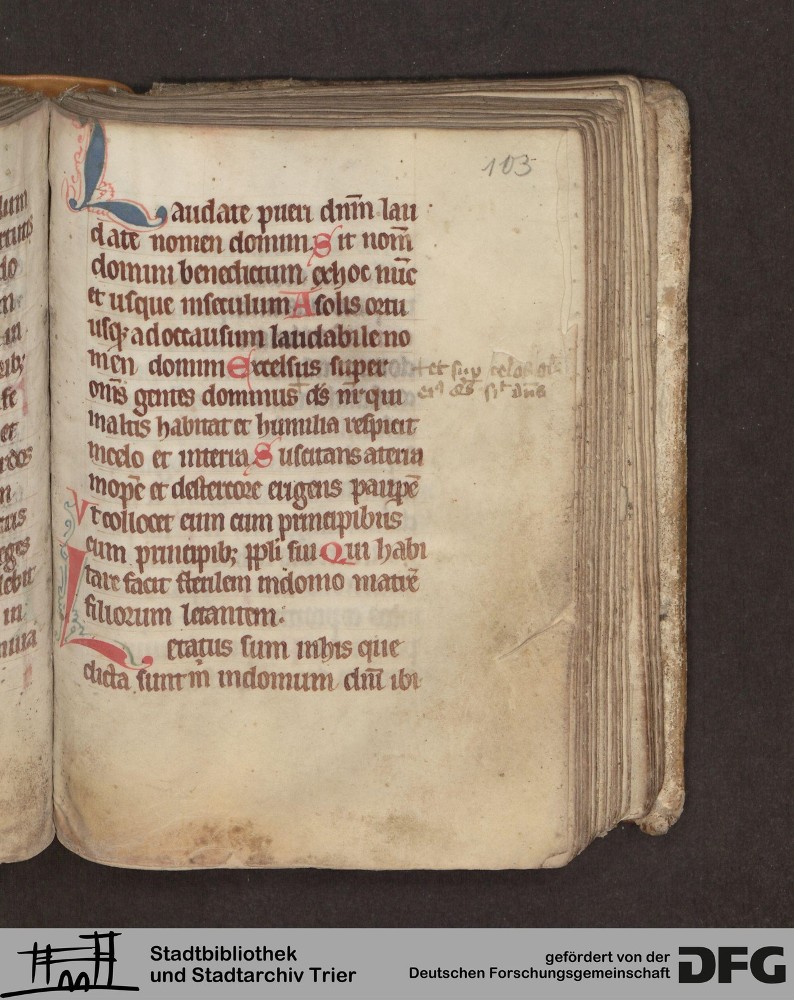 103
Laudate pueri dn̄m lau
date nomen domini Sit nom̄
domini benedictum exhoc nūc
et usque inseculum A solis ortu
usqꝫ adoccasum laudabile no
men domini Excelsus super
om̄s gentes dominus
et sup celos
ds̄ nr̄ qui
maltis habitat et humilia respicit
incelo et interra Suscitans aterra
inopē et destercore erigens paupē
Vt collocet eum cum principibus
cum principibꝫ ppli sui Qui habi
tare facit sterilem indomo matrē
filiorum letantem.
Letatus sum inhis que
dicta sunt m indomum dn̄i ibi
Stadtbibliothek
und Stadtarchiv Trier
gefördert von der
Deutschen Forschungsgemeinschaft
DFG